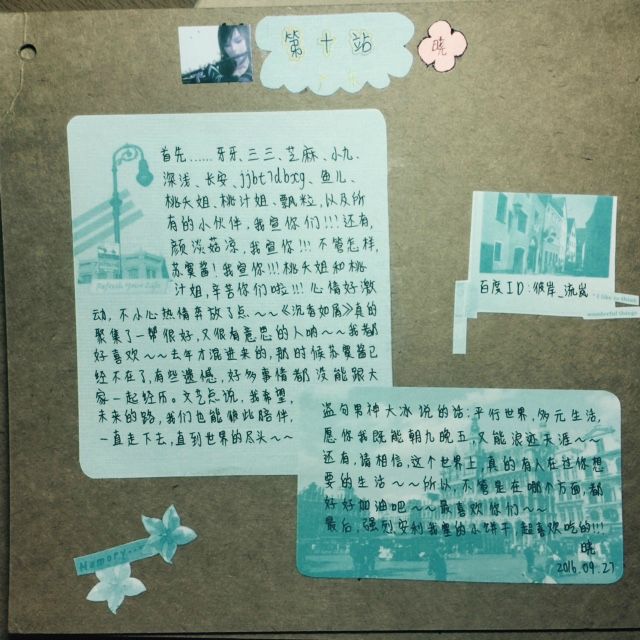 第十站
晓
首先……牙牙、三三、芝麻、小九、
深浅、长安、jjbt7dbxg、鱼儿、
桃夭姐、桃汁姐、飘粒，以及所
有的小伙伴，我宣你们!!!还有，
颜淡菇凉，我宣你!!!不管怎样，
苏寞酱！我宣你!!!桃夭姐和桃
汁姐，辛苦你们啦!!!心情好激
动，不小心热情奔放了点~~《沉香如屑》真的
聚集了一帮很好，又很有意思的人呐~~我都
好喜欢~~去年才混进来的，那时候苏寞酱已
经不在了，有些遗憾，好多事情都没能跟大
家一起经历。文艺点说，我希望，
未来的路，我们也能彼此陪伴，
一直走下去，直到世界的尽头~~
Refresh Your Life
百度ID：彼岸_流岚
I like to think
wonderful things
盗句男神大冰说的话：平行世界，多元生活，
愿你我既能朝九晚五，又能浪迹天涯~~
还有，请相信，这个世界上，真的有人在过你想
要的生活~~所以，不管是在哪个方面，都
好好加油吧~~最喜欢你们~~
最后，强烈安利我里的小饼干，超喜欢吃的!!!
晓
2016.09.27
Memory...